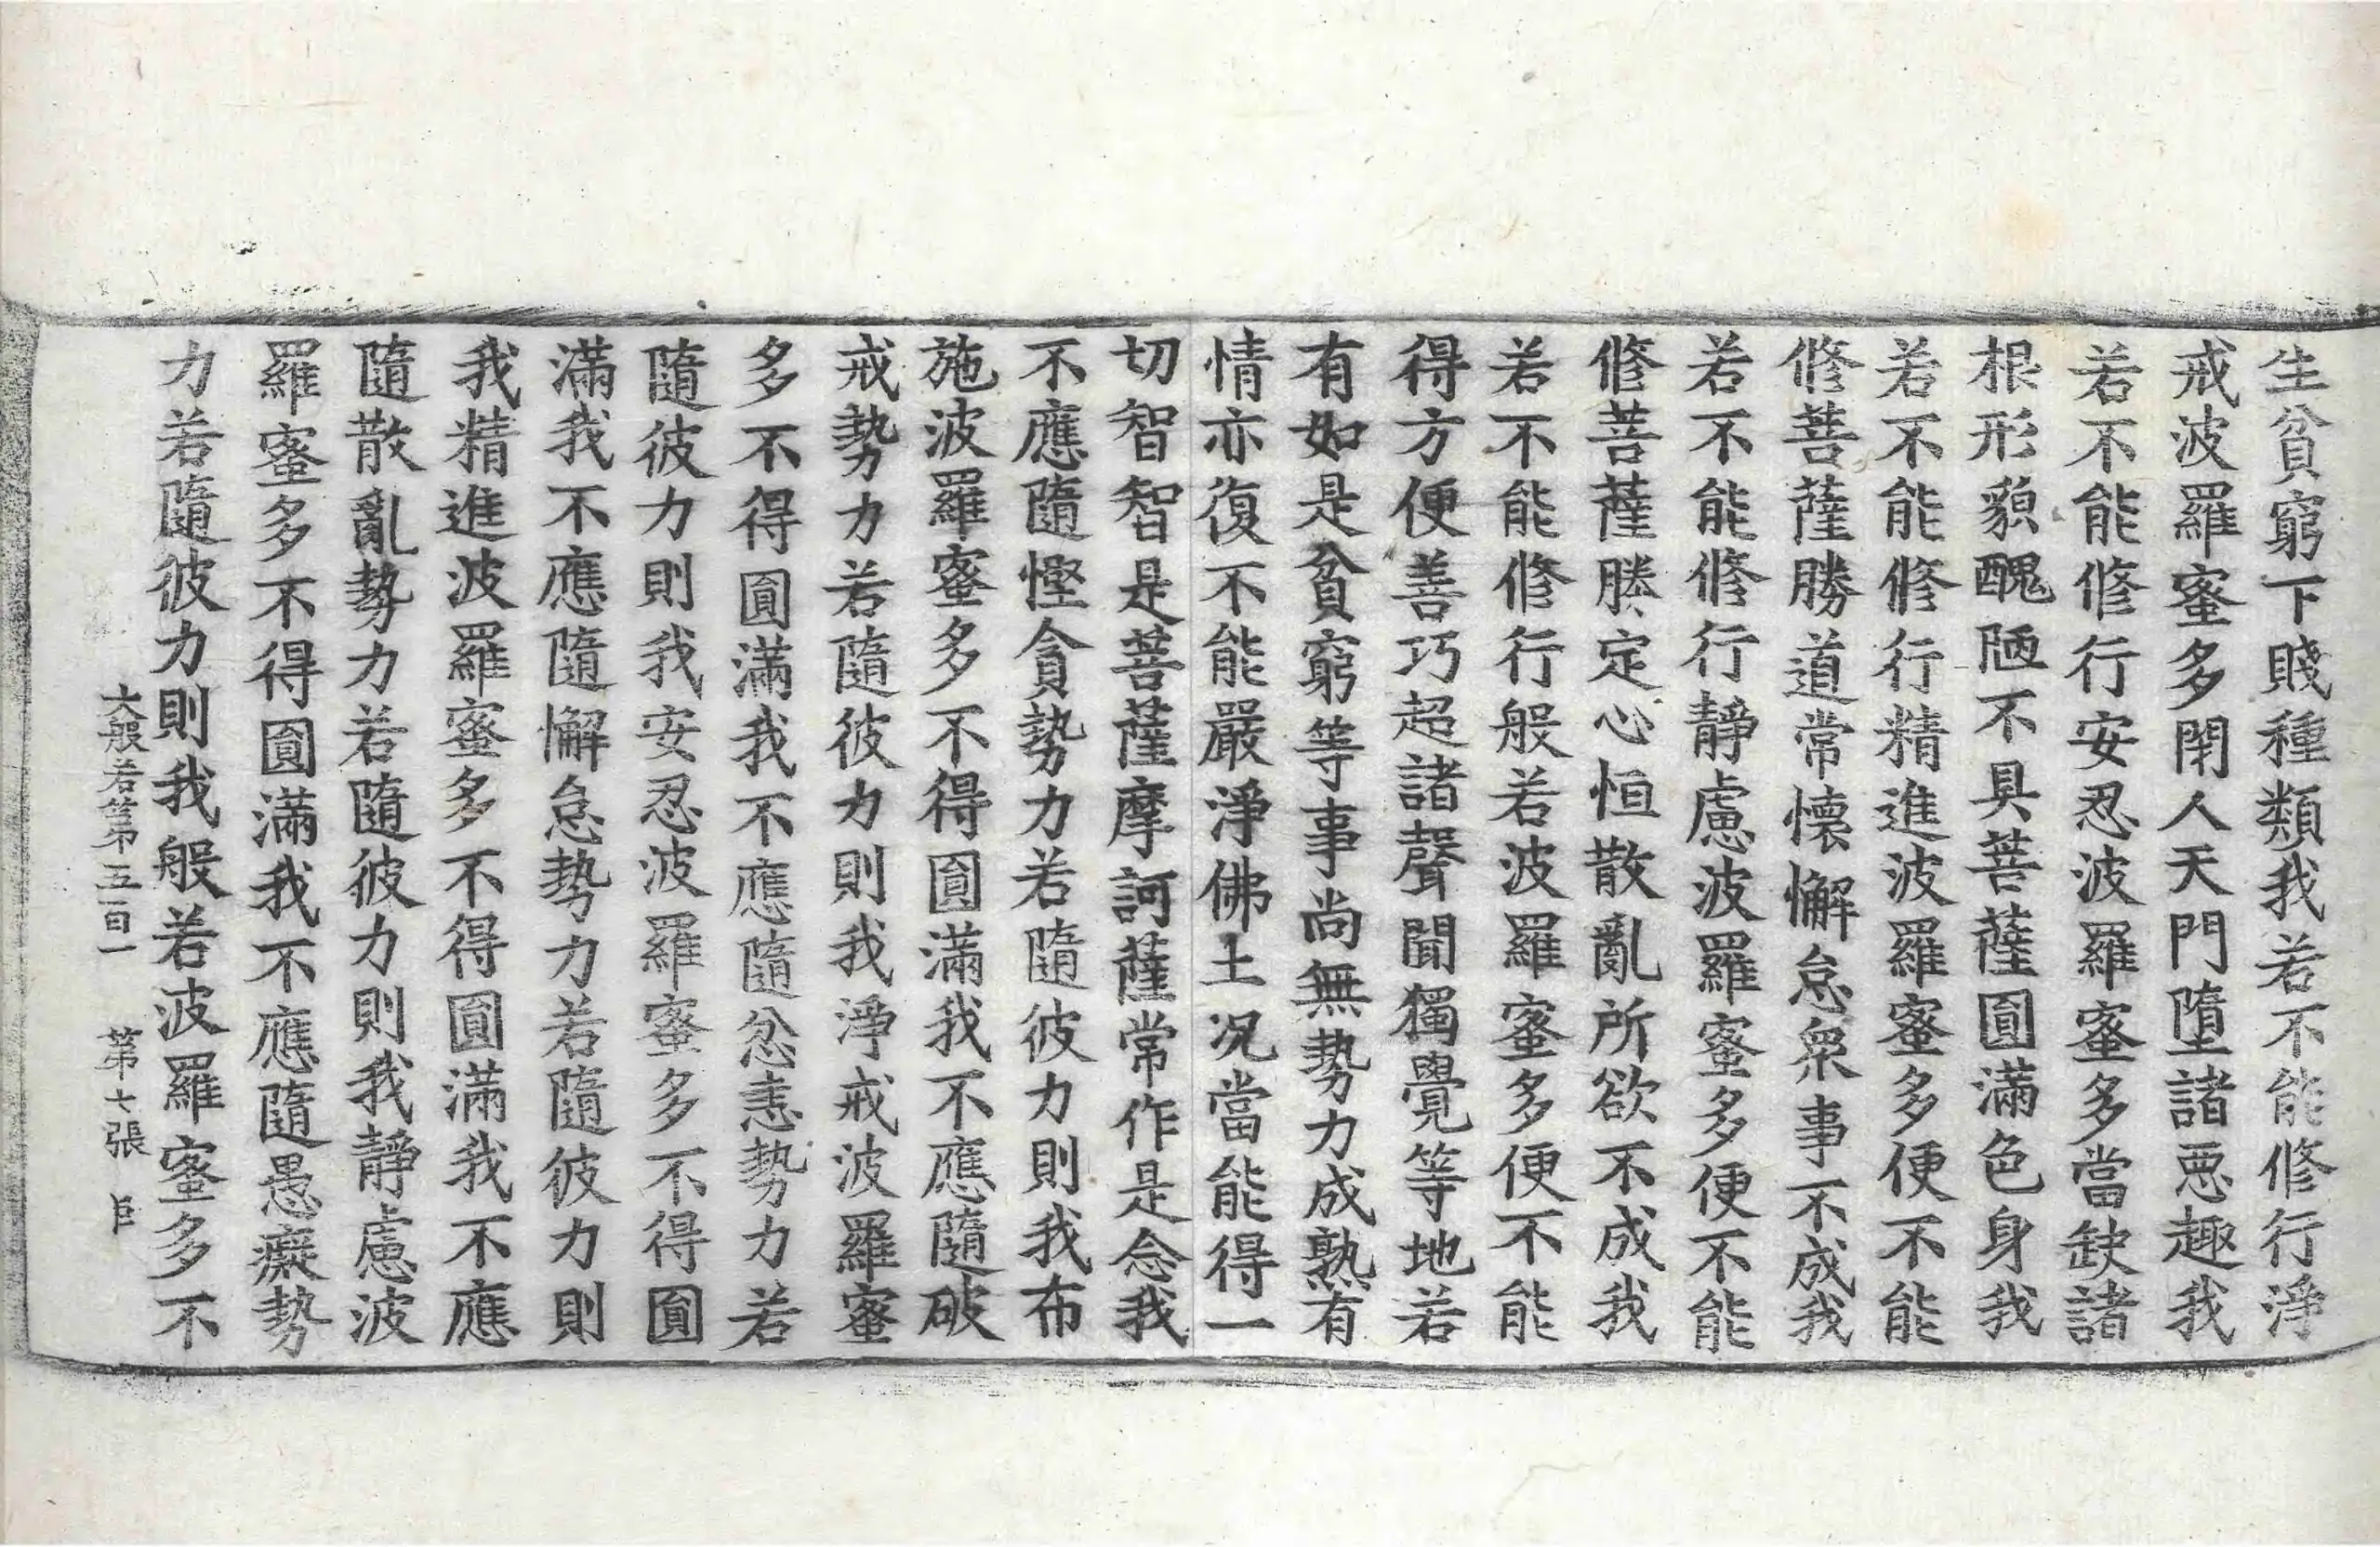 生貧窮下賤種類我若不能修行淨
戒波羅蜜多閇人天門墮諸惡趣我
若不能修行安忍波羅蜜多當缺諸
根形貌醜陋不具菩薩圓滿色身我
若不能修行精進波羅蜜多便不能
修菩薩勝道常懷懈怠衆事不成我
若不能修行靜慮波羅蜜多便不能
修菩薩勝定心恒散亂所欲不成我
若不能修行般若波羅蜜多便不能
得方便善巧超諸聲聞獨覺等地若
有如是貧窮等事尚無勢力成熟有
情亦復不能嚴淨佛土況當能得一
切智智是菩薩摩訶薩常作是念我
不應隨慳貪勢力若隨彼力則我布
施波羅蜜多不得圓滿我不應隨破
戒勢力若隨彼力則我淨戒波羅蜜
多不得圓滿我不應隨忿恚勢力若
隨彼力則我安忍波羅蜜多不得圓
滿我不應隨懈怠勢力若隨彼力則
我精進波羅蜜多不得圓滿我不應
隨散亂勢力若隨彼力則我靜慮波
羅蜜多不得圓滿我不應隨愚癡勢
力若隨彼力則我般若波羅蜜多不
大般若第五百一 第七張 巨